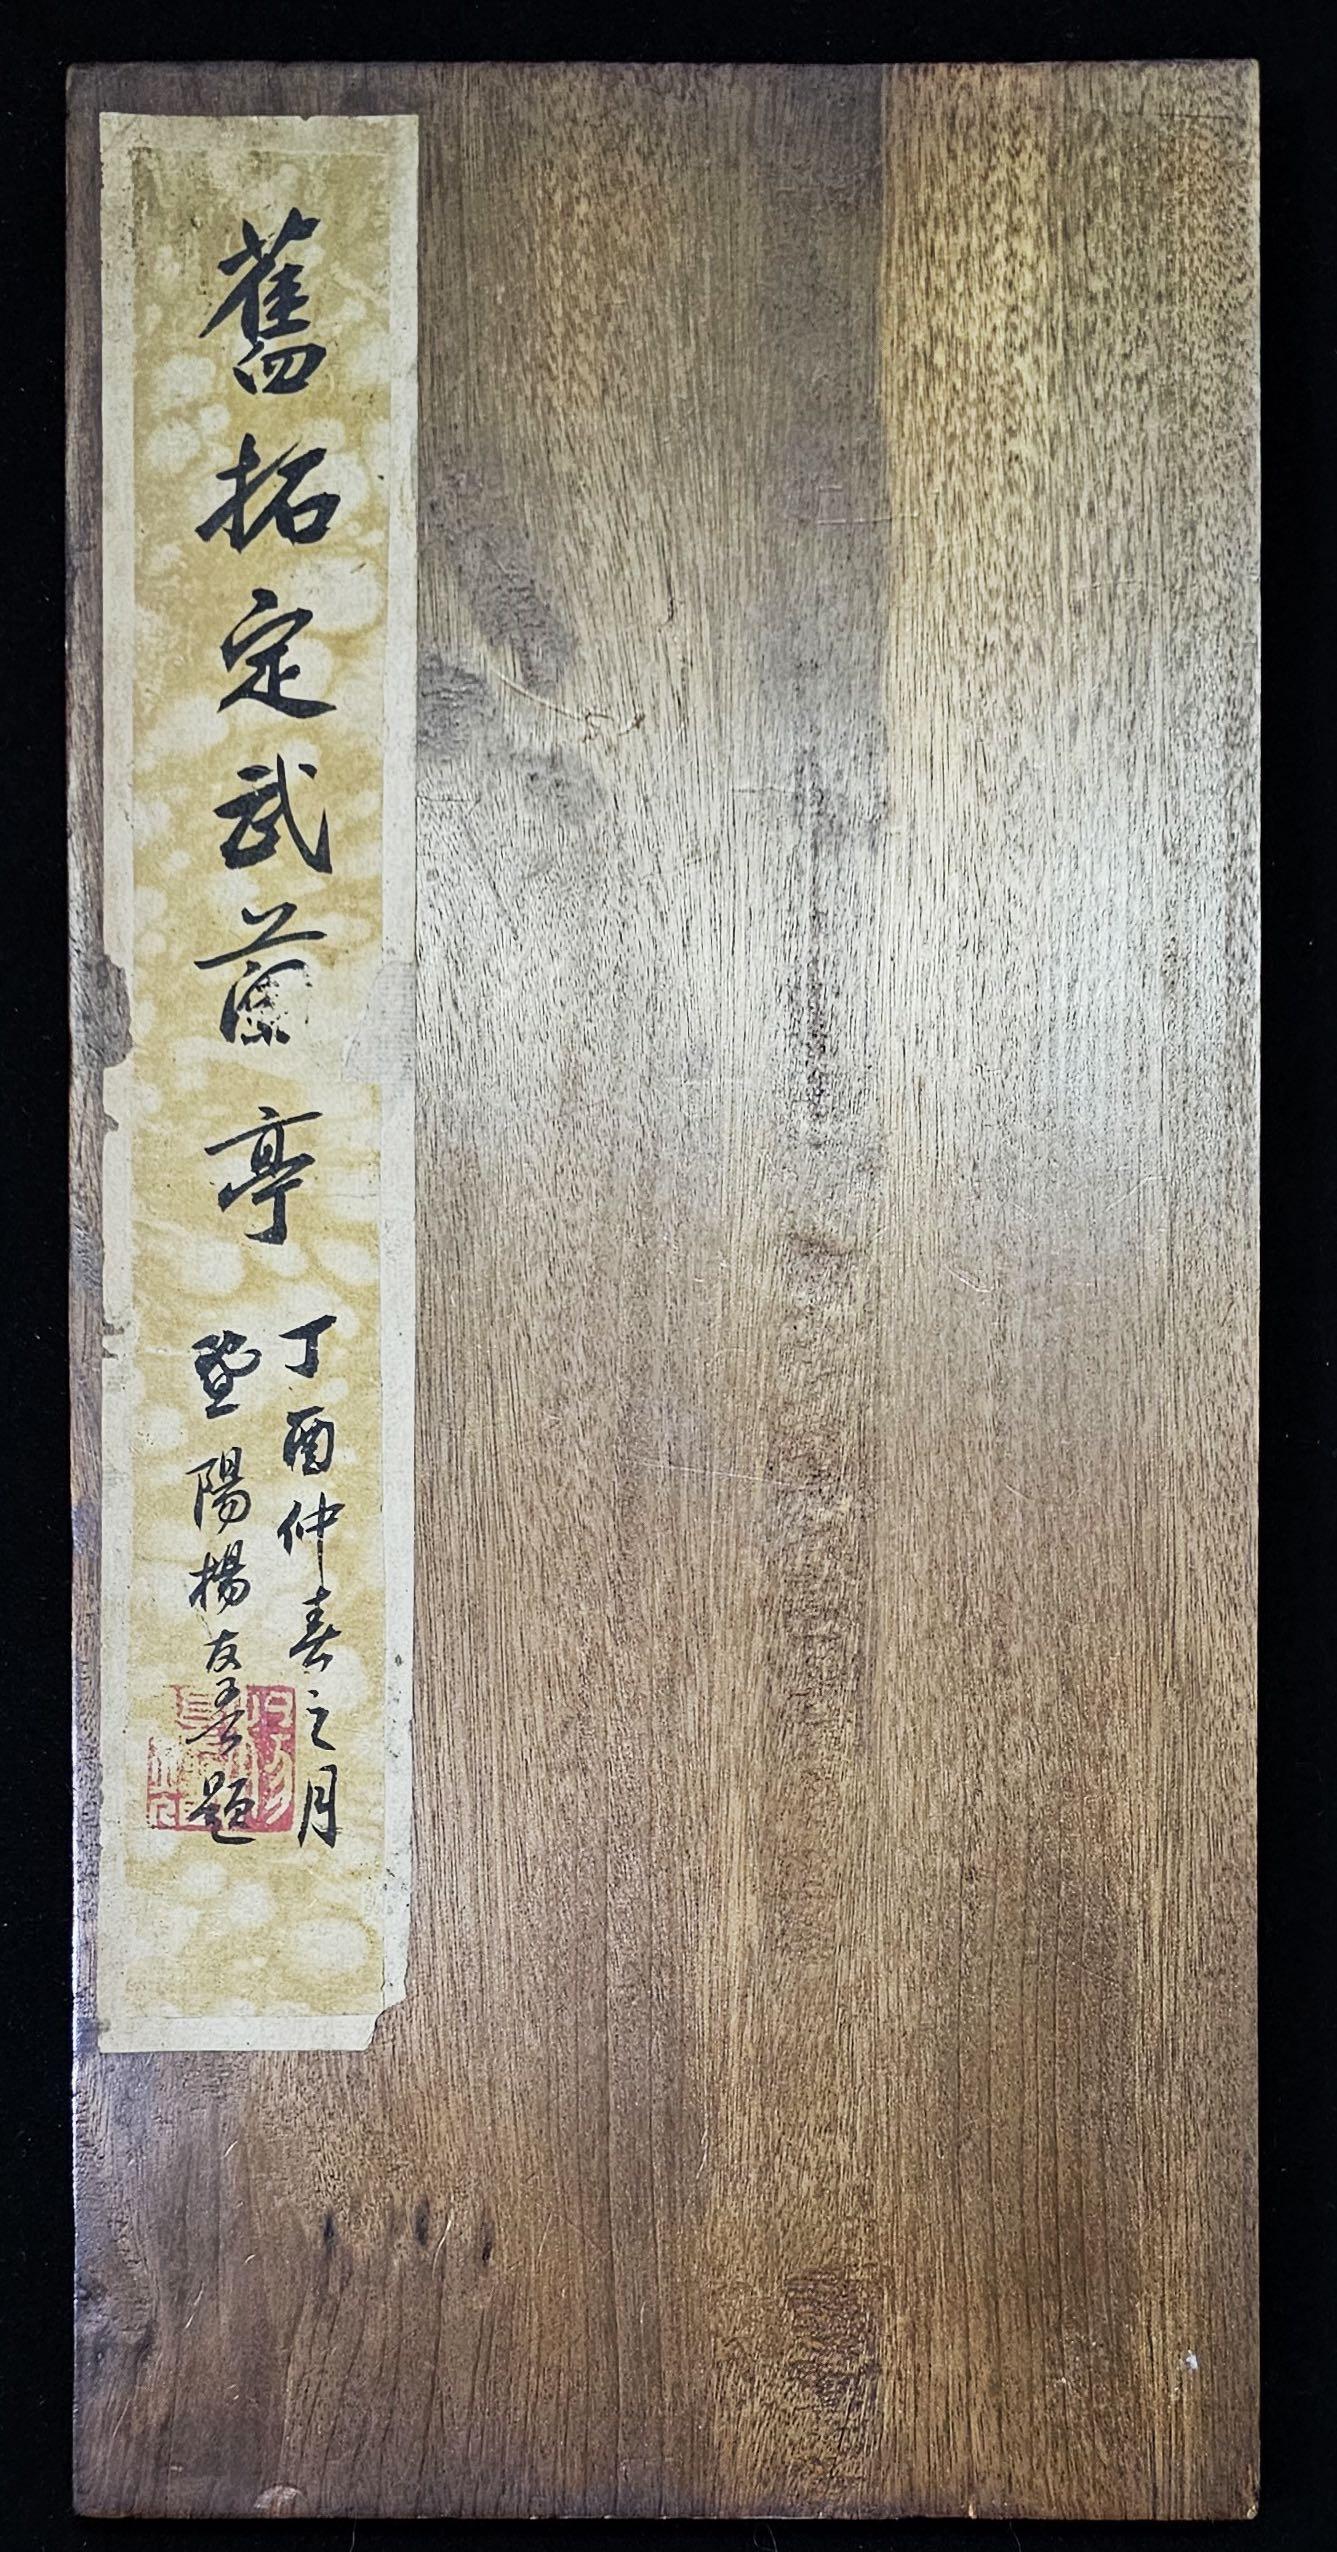 舊拓定武蘭亭
丁酉仲春之月
暨陽楊友 題